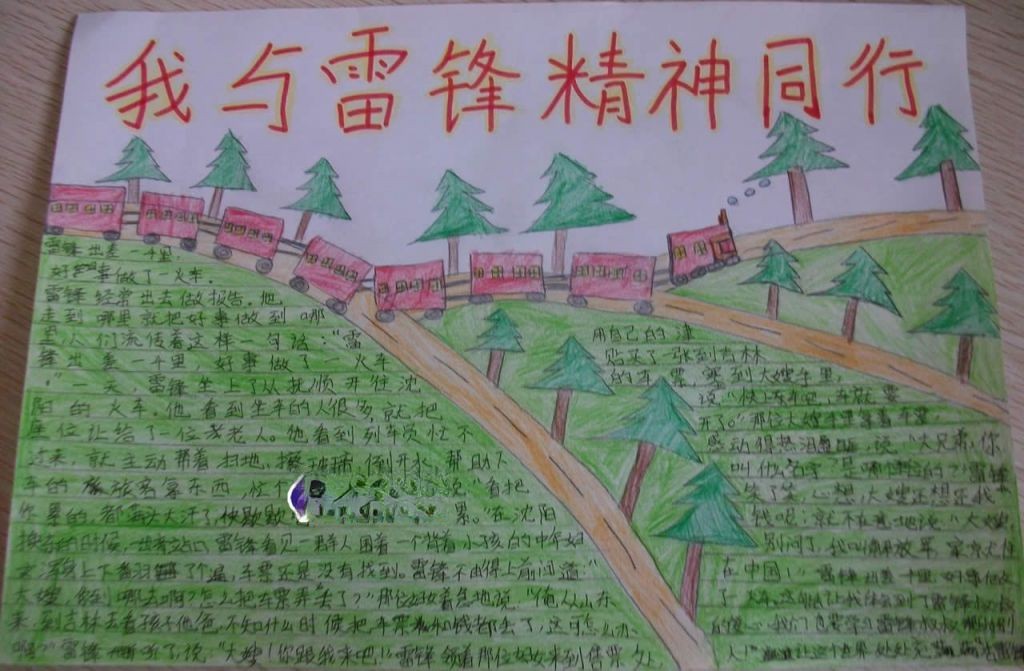 我与雷锋精神同行
雷锋出差一千里
好事做了一火车.
雷锋经常出去做报告。他
走到哪里就把好事做到哪
里,人们流传着这样一句话:“雷
锋出差一千里,好事做了一火车
。”一天,雷锋坐上了从抚顺开往沈
阳的火车.他看到坐车的人很多,就把
座位让给了一位老老人。他看到列车员忙不
过来就主动帮着扫地,擦玻璃,倒开水,帮助下
车的旅客拿东西,忙个 说“看把
你累的都满头大汗了,快歇歇 累。”在沈阳
换车的时候,一出站口雷锋看见一群人围着一个背着小孩的中年妇
女浑身上下翻了个遍,车票还是没有找到。雷锋不由得上前问道:“
大嫂,你到哪去啊?怎么把车票弄丢了?”那位妇女着急地说.“俺从山东
来,到吉林去看孩子他爸,不知什么时候把车票和钱都丢了,这可怎么办
啊?”雷锋听了说,“大嫂!你跟我来吧!”雷锋领着那位妇女来到售票处,
用自己的津
贴买了一张到吉林
的车票,塞到大嫂手里,
说“快上车吧,车就要
开了。”那位大嫂手里拿着车票,
感动得热泪 说“大兄弟,你
叫什么名字?是哪个单位的?”雷锋
笑了笑,心想,大嫂还想还我
钱呢,就不在意地说“大嫂,
别问了,我叫解放军,家就住
在中国。”雷锋出差一千里,好事做
了一火车。 让我体会到了雷锋叔叔
的 我们也要学习雷锋叔叔
人